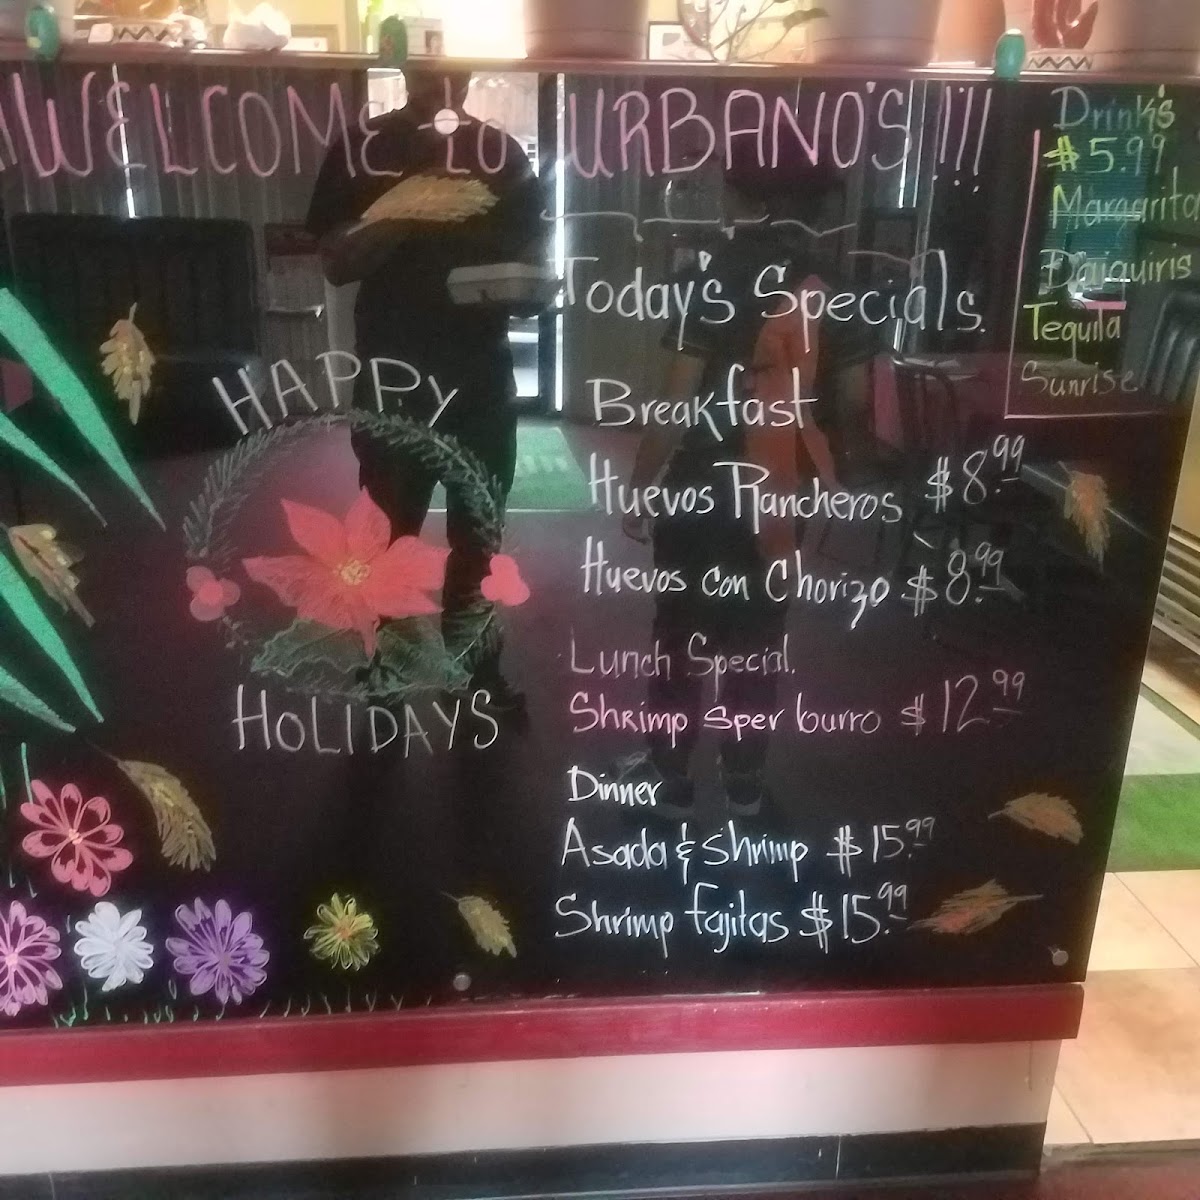 WELCOME to URBANO'S !!!
Today's Specials.
Breakfast
Huevos Rancheros $8.99
Huevos con Chorizo $8.99
Lunch Special.
Shrimp Sper burro $12.99
Dinner
Asada & Shrimp $15.99
Shrimp fajitas $15.99
HAPPY
HOLIDAYS
Drink's
$5.99
Margarita
Daiquiris
Tequila
Sunrise